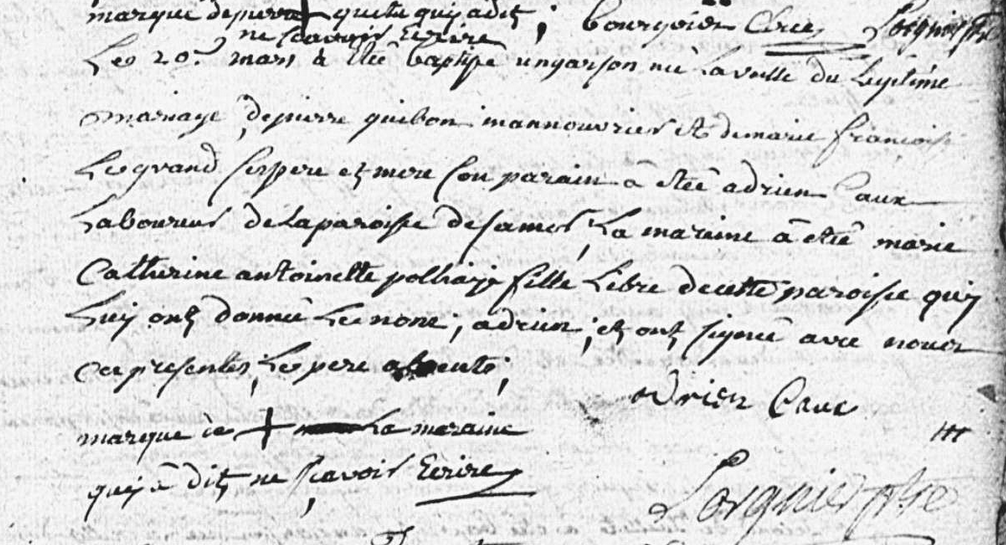 marque de quitu quij a dit; bourgois Caux Lorgnier ptre
ne scavoir Ecrire
Le 20e mars à êtée baptisé un garson né la veille du Legitime
mariage de pierre quibon mannouvrier et de marie francoise
Le grand ses pere et mere son parain à êtée adrien Caux
Laboureur de la paroisse de samer, La mareine à êtée marie
Catherine antoinette fille Libre de cette paroisse quij
Luij ont donnée Le nom, adrien; et ont signée avec nous
ces presentes, Le pere absent;
adrien Caux
marque de + La maraine
quij à dit ne scavoir Ecrire
Lorgnier ptre